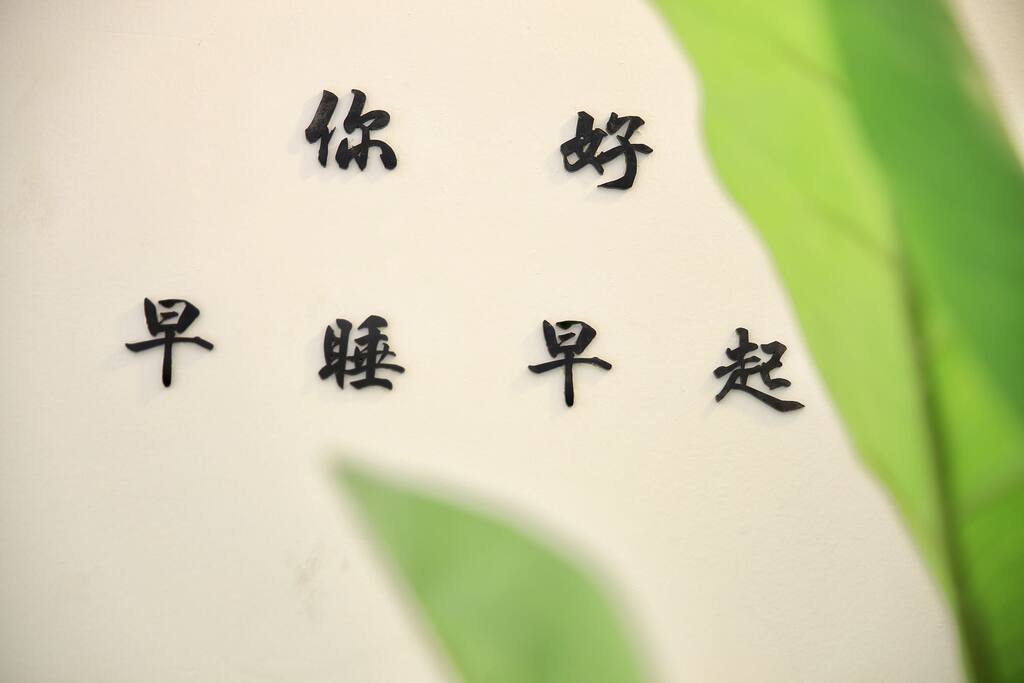 你好
早睡早起